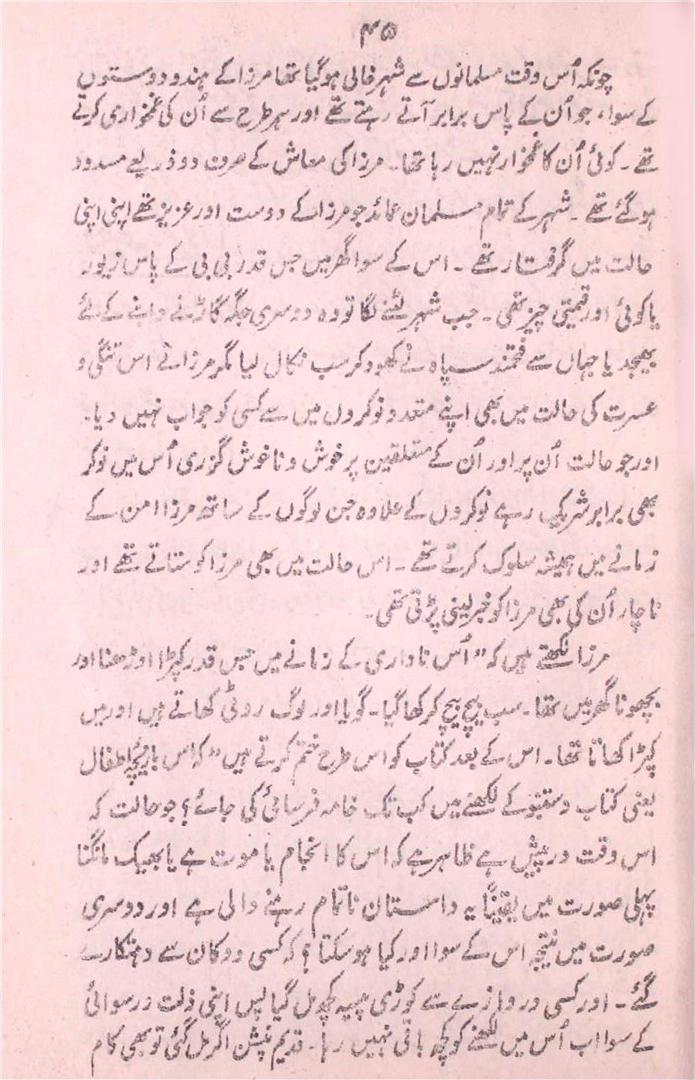 ۴۵
چونکہ اُس وقت مسلمانوں سے شہر خالی ہوگیا تھا مرزا کے ہندو دوستوں
کے سوا، جو اُن کے پاس برابر آتے رہتے تھے اور ہر طرح سے اُن کی غمخواری کرتے
تھے۔ کوئی اُن کا غمخوار نہیں رہا تھا۔ مرزا کی معاش کے صرف دو ذریعے مسدود
ہو گئے تھے۔ شہر کے تمام مسلمان عمائد جو مرزا کے دوست اور عزیز تھے اپنی اپنی
حالت میں گرفتار تھے۔ اس کے سوا گھر میں جس قدر بی بی کے پاس زیور
یا کوئی اور قیمتی چیز تھی۔ جب شہر لٹنے لگا تو وہ دوسری جگہ گاڑنے دابنے کے لئے
بھیجدیا جہاں سے فتحمند سپاہ نے کھود کر سب نکال لیا مگر مرزا نے اس تنگی و
عسرت کی حالت میں بھی اپنے متعدد نوکروں میں سے کسی کو جواب نہیں دیا۔
اور جو حالت اُن پر اور اُن کے متعلقین پر خوش و ناخوش گزری اُس میں نوکر
بھی برابر شریک رہے نوکروں کے علاوہ جن لوگوں کے ساتھ مرزا امن کے
زمانے میں ہمیشہ سلوک کرتے تھے۔ اس حالت میں بھی مرزا کو ستاتے تھے اور
ناچار اُن کی بھی مرزا کو خبر لینی پڑتی تھی۔
مرزا لکھتے ہیں کہ "اُس ناداری کے زمانے میں جس قدر کپڑا اوڑھنا اور
بچھونا گھر میں تھا۔ سب بیچ بیچ کر کھا گیا۔ گویا اور لوگ روٹی کھاتے ہیں اور میں
کپڑا کھاتا تھا۔ اس کے بعد کتاب کو اس طرح ختم کرتے ہیں "کہ اس بازیچۂ اطفال
یعنی کتاب دستنبو کے لکھنے میں کب تک خامہ فرسائی کی جائے؟ جو حالت کہ
اس وقت درپیش ہے ظاہر ہے کہ اس کا انجام یا موت ہے یا بھیک مانگنا
پہلی صورت میں یقیناً یہ داستان ناتمام رہنے والی ہے اور دوسری
صورت میں نتیجہ اس کے سوا اور کیا ہو سکتا؟ کہ کسی دوکان سے دہتکارے
گئے۔ اور کسی دروازے سے کوڑی پیسہ کچھ مل گیا پس اپنی ذلت و رسوائی
کے سوا اب اُس میں لکھنے کو کچھ باقی نہیں رہا۔ قدیم پنشن اگر مل گئی تو بھی کام